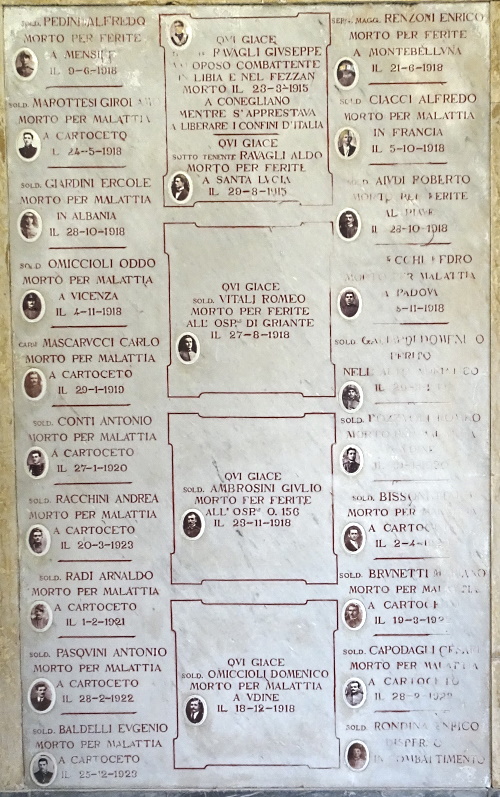 SOLD. PEDINI ALFREDO
MORTO PER FERITE
A MENSIFE
IL 9-6-1918
SOLD. MAROTTESI GIROL
MORTO PER MALATTIA
A CARTOCETO
IL 24-5-1918
SOLD. GIARDINI ERCOLE
MORTO PER MALATTIA
IN ALBANIA
IL 28-10-1918
SOLD. OMICCIOLI ODDO
MORTO PER MALATTIA
A VICENZA
IL 4-11-1918
MASCARVCCI CARLO
MORTO PER MALATTIA
A CARTOCETO
IL 29-1-1919
SOLD. CONTI ANTONIO
MORTO PER MALATTIA
A CARTOCETO
IL 27-1-1920
SOLD. RACCHINI ANDREA
MORTO PER MALATTIA
A CARTOCETO
IL 20-3-1923
SOLD. RADI ARNALDO
MORTO PER MALATTIA
A CARTOCETO
IL 1-2-1921
SOLD. PASQVINI ANTONIO
MORTO PER MALATTIA
A CARTOCETO
IL 28-2-1922
SOLD. BALDELLI EVGENIO
MORTO PER MALATTIA
A CARTOCETO
IL 25-12-1923
QVI GIACE
RAVAGLI GIVSEPPE
VALOROSO COMBATTENTE
IN LIBIA E NEL FEZZAN
MORTO IL 23-3-1915
A CONEGLIANO
MENTRE S'APPRESTAVA
A LIBERARE I CONFINI D'ITALIA
QVI GIACE
SOTTO TENENTE RAVAGLI ALDO
MORTO PER FERITE
A SANTA LVCIA
IL 29-8-1915
QVI GIACE
SOLD. VITALI ROMEO
MORTO PER FERITE
ALL' OSP. DI GRIANTE
IL 27-8-1918
QVI GIACE
SOLD. AMBROSINI GIVLIO
MORTO PER FERITE
ALL' OSP. O. 156
IL 23-11-1918
QVI GIACE
SOLD. OMICCIOLI DOMENICO
MORTO PER MALATTIA
A VDINE
IL 18-12-1918
SERG. MAGG. RENZONI ENRICO
MORTO PER FERITE
A MONTEBELLVNA
IL 21-6-1918
SOLD. CIACCI ALFREDO
MORTO PER MALATTIA
IN FRANCIA
IL 5-10-1918
SOLD. AIVDI ROBERTO
MORTO PER FERITE
AL PIAVE
IL 28-10-1918
PEDRO
MORTO PER MALATTIA
A PADOVA
SOLD.
FERITO
SOLD.
SOLD.
MORTO PER
A
IL
SOLD. BRVNETTI
MORTO PER MALATTIA
A CARTOCETO
IL
SOLD. CAPODAGLI
MORTO PER MALATTIA
A CARTOCETO
IL
SOLD. RONDINA ENRICO
DISPERSO
IN COMBATTIMENTO